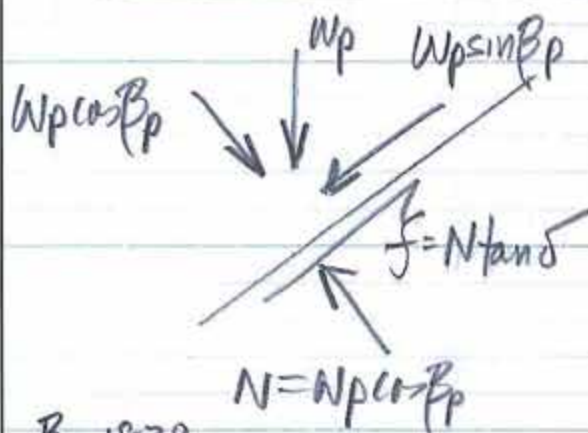 Wp
Wp sinβp
Wp cosβp
f=N tan δ
N=Wp cosβp